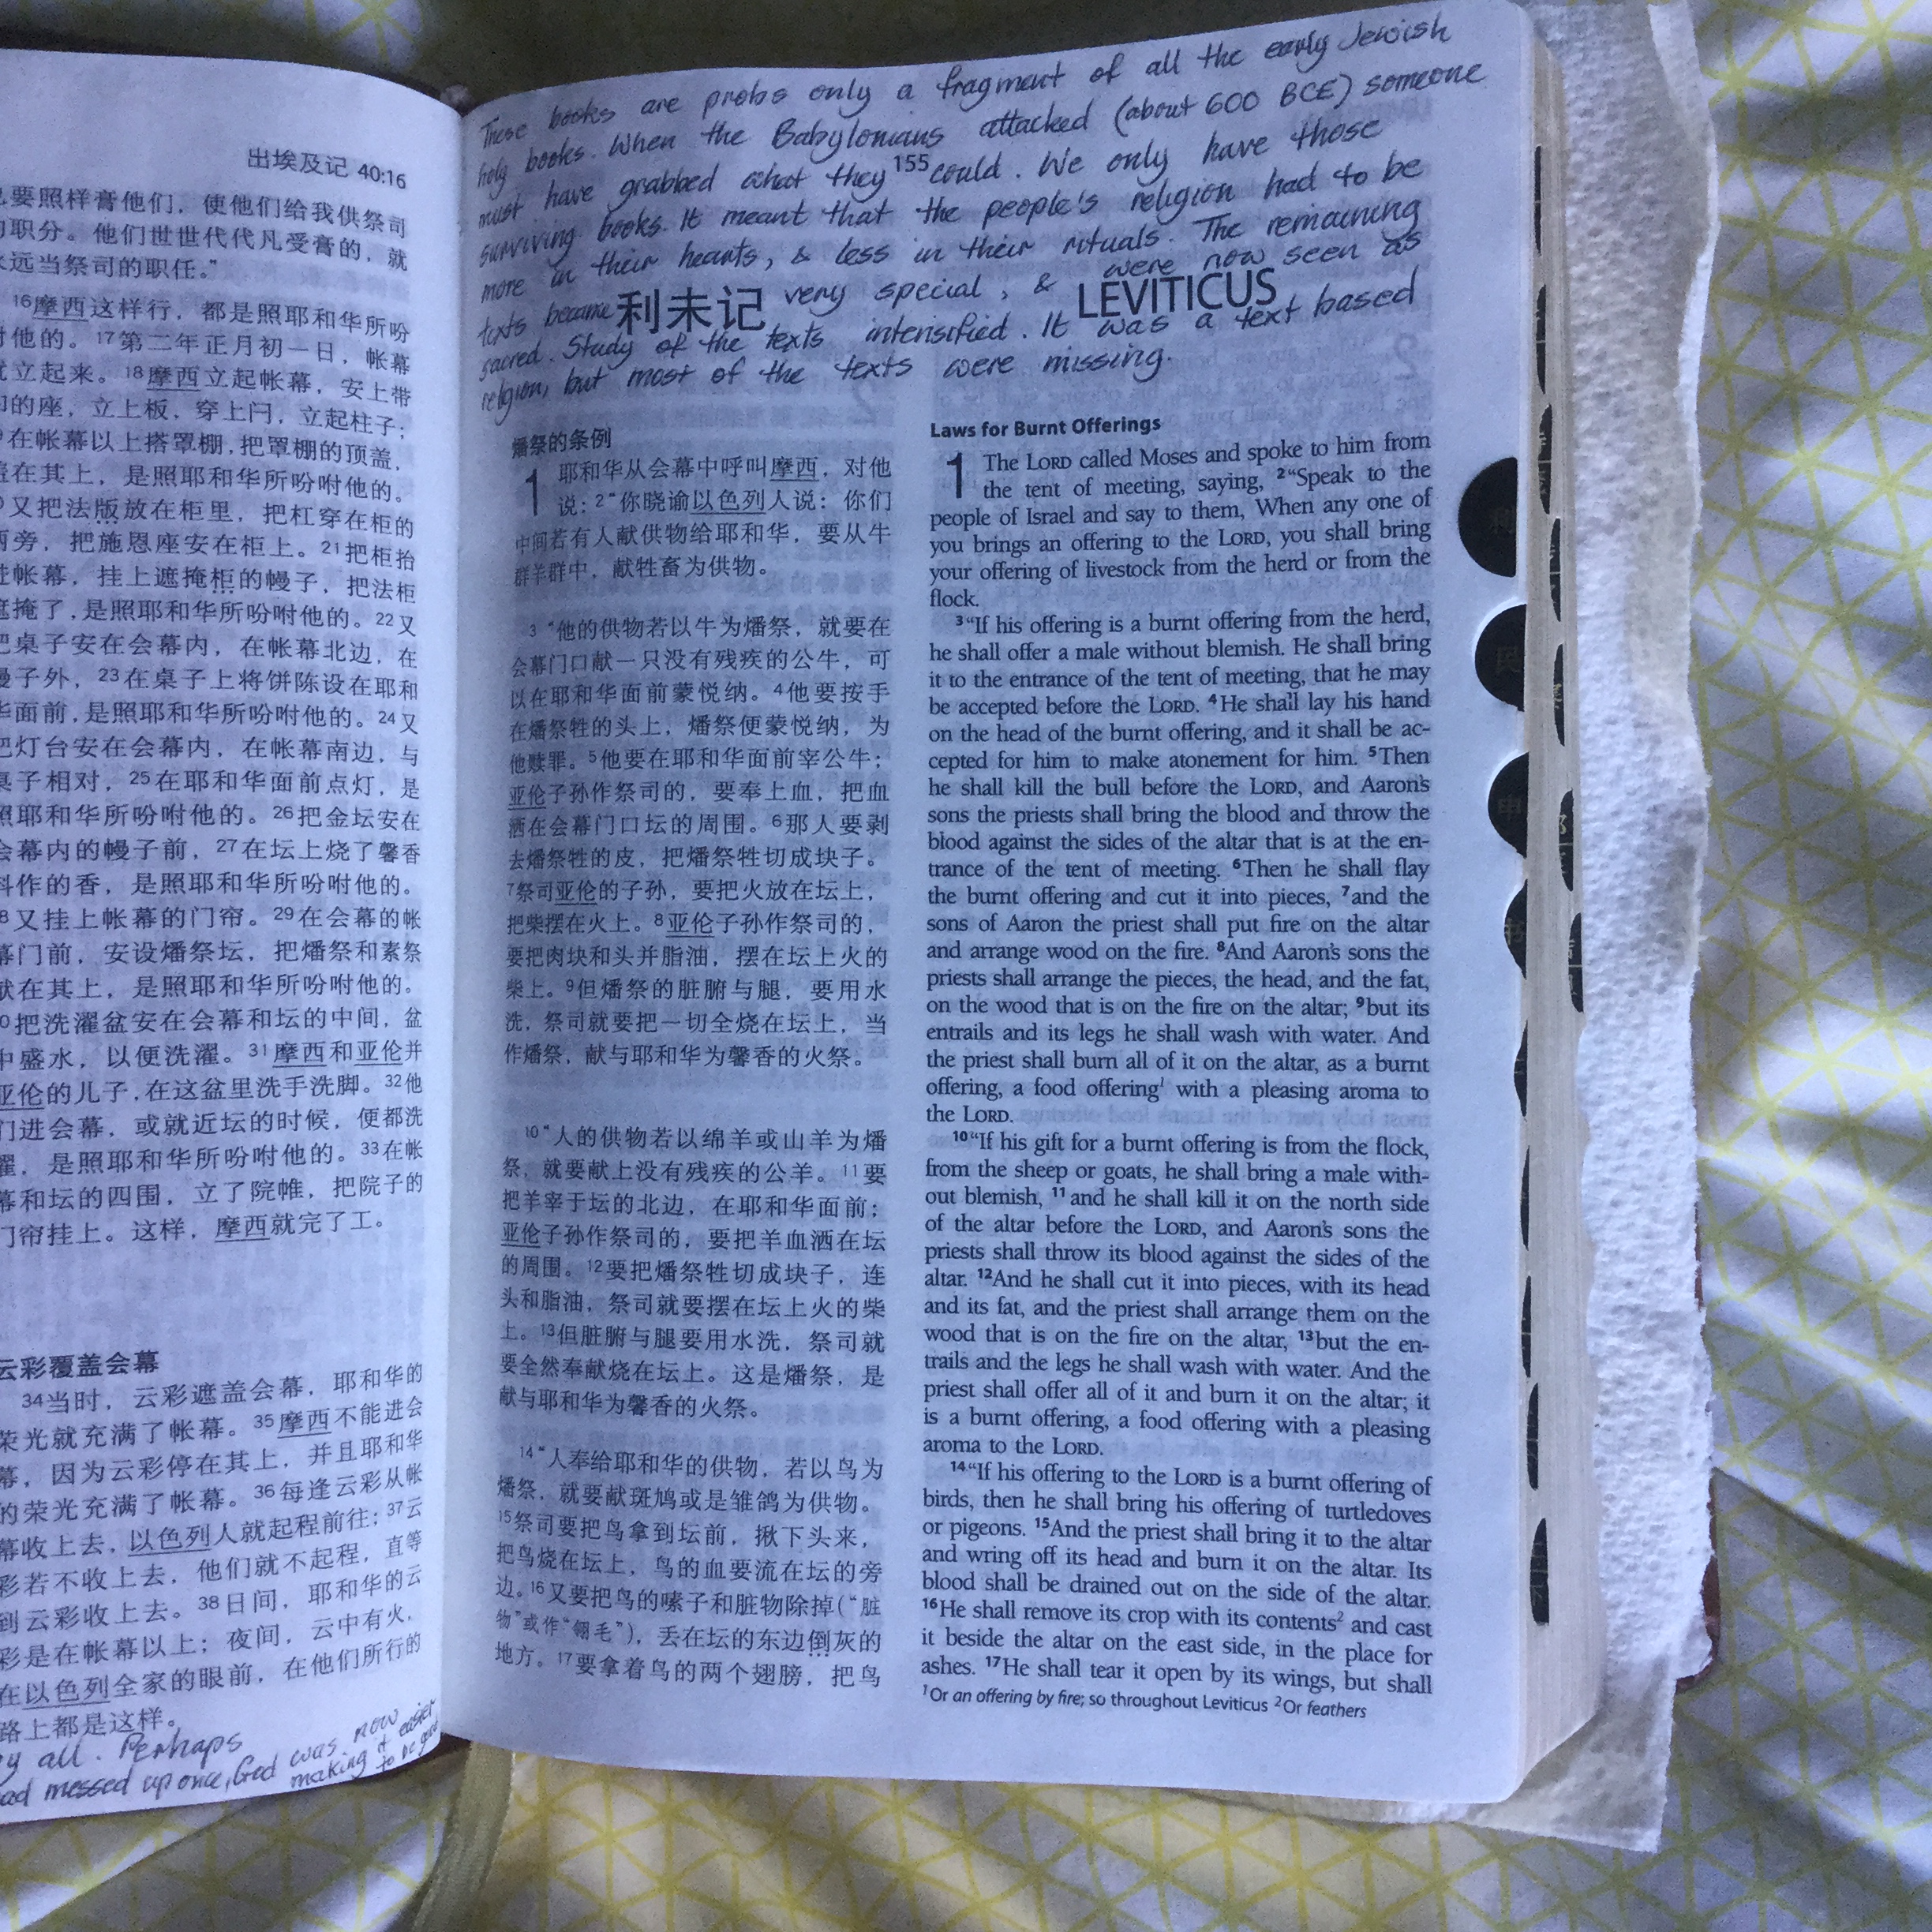 出埃及记 40:16
要照样膏他们，使他们给我供祭司
职分。他们世世代代凡受膏的，就
远当祭司的职任。”
16摩西这样行，都是照耶和华所吩
他的。17第二年正月初一日，帐幕
立起来。18摩西立起帐幕，安上带
的座，立上板，穿上闩，立起柱子；
在帐幕以上搭罩棚，把罩棚的顶盖，
在其上，是照耶和华所吩咐他的。
又把法版放在柜里，把杠穿在柜的
两旁，把施恩座安在柜上。21把柜抬
进帐幕，挂上遮掩柜的幔子，把法柜
遮掩了，是照耶和华所吩咐他的。22又
把桌子安在会幕内，在帐幕北边，在
幔子外，23在桌子上将饼陈设在耶和
华面前，是照耶和华所吩咐他的。24又
把灯台安在会幕内，在帐幕南边，与
桌子相对，25在耶和华面前点灯，是
照耶和华所吩咐他的。26把金坛安在
会幕内的幔子前，27在坛上烧了馨香
料作的香，是照耶和华所吩咐他的。
8又挂上帐幕的门帘。29在会幕的帐
幕门前，安设燔祭坛，把燔祭和素祭
献在其上，是照耶和华所吩咐他的。
0把洗濯盆安在会幕和坛的中间，盆
中盛水，以便洗濯。31摩西和亚伦并
亚伦的儿子，在这盆里洗手洗脚。32他
们进会幕，或就近坛的时候，便都洗
濯，是照耶和华所吩咐他的。33在帐
幕和坛的四围，立了院帷，把院子的
门帘挂上。这样，摩西就完了工。
云彩覆盖会幕
34当时，云彩遮盖会幕，耶和华的
荣光就充满了帐幕。35摩西不能进会
幕，因为云彩停在其上，并且耶和华
的荣光充满了帐幕。36每逢云彩从帐
幕收上去，以色列人就起程前往；37云
彩若不收上去，他们就不起程，直等
到云彩收上去。38日间，耶和华的云
彩是在帐幕以上；夜间，云中有火，
在以色列全家的眼前，在他们所行的
路上都是这样。
y all. Perhaps
ad messed up once, God was now
making it easier
to be good
These books are probs only a fragment of all the early Jewish
holy books. When the Babylonians attacked (about 600 BCE) someone
must have grabbed what they could. We only have those
155
surviving books. It meant that the people's religion had to be
more in their hearts, & less in their rituals. The remaining
texts became very special, & were now seen as
利未记 LEVITICUS
sacred. Study of the texts intensified. It was a text based
religion, but most of the texts were missing.
燔祭的条例
1 耶和华从会幕中呼叫摩西，对他
说：2“你晓谕以色列人说：你们
中间若有人献供物给耶和华，要从牛
群羊群中，献牲畜为供物。
3“他的供物若以牛为燔祭，就要在
会幕门口献一只没有残疾的公牛，可
以在耶和华面前蒙悦纳。4他要按手
在燔祭牲的头上，燔祭便蒙悦纳，为
他赎罪。5他要在耶和华面前宰公牛；
亚伦子孙作祭司的，要奉上血，把血
洒在会幕门口坛的周围。6那人要剥
去燔祭牲的皮，把燔祭牲切成块子。
7祭司亚伦的子孙，要把火放在坛上，
把柴摆在火上。8亚伦子孙作祭司的，
要把肉块和头并脂油，摆在坛上火的
柴上。9但燔祭的脏腑与腿，要用水
洗，祭司就要把一切全烧在坛上，当
作燔祭，献与耶和华为馨香的火祭。
10“人的供物若以绵羊或山羊为燔
祭，就要献上没有残疾的公羊。11要
把羊宰于坛的北边，在耶和华面前；
亚伦子孙作祭司的，要把羊血洒在坛
的周围。12要把燔祭牲切成块子，连
头和脂油，祭司就要摆在坛上火的柴
上。13但脏腑与腿要用水洗，祭司就
要全然奉献烧在坛上。这是燔祭，是
献与耶和华为馨香的火祭。
14“人奉给耶和华的供物，若以鸟为
燔祭，就要献斑鸠或是雏鸽为供物。
15祭司要把鸟拿到坛前，揪下头来，
把鸟烧在坛上，鸟的血要流在坛的旁
边。16又要把鸟的嗉子和脏物除掉(“脏
物”或作“翎毛”)，丢在坛的东边倒灰的
地方。17要拿着鸟的两个翅膀，把鸟
Laws for Burnt Offerings
1 The LORD called Moses and spoke to him from
the tent of meeting, saying, 2“Speak to the
people of Israel and say to them, When any one of
you brings an offering to the LORD, you shall bring
your offering of livestock from the herd or from the
flock.
3“If his offering is a burnt offering from the herd,
he shall offer a male without blemish. He shall bring
it to the entrance of the tent of meeting, that he may
be accepted before the LORD. 4He shall lay his hand
on the head of the burnt offering, and it shall be ac-
cepted for him to make atonement for him. 5Then
he shall kill the bull before the LORD, and Aaron's
sons the priests shall bring the blood and throw the
blood against the sides of the altar that is at the en-
trance of the tent of meeting. 6Then he shall flay
the burnt offering and cut it into pieces, 7and the
sons of Aaron the priest shall put fire on the altar
and arrange wood on the fire. 8And Aaron's sons the
priests shall arrange the pieces, the head, and the fat,
on the wood that is on the fire on the altar; 9but its
entrails and its legs he shall wash with water. And
the priest shall burn all of it on the altar, as a burnt
offering, a food offering1 with a pleasing aroma to
the LORD.
10“If his gift for a burnt offering is from the flock,
from the sheep or goats, he shall bring a male with-
out blemish, 11and he shall kill it on the north side
of the altar before the LORD, and Aaron's sons the
priests shall throw its blood against the sides of the
altar. 12And he shall cut it into pieces, with its head
and its fat, and the priest shall arrange them on the
wood that is on the fire on the altar, 13but the en-
trails and the legs he shall wash with water. And the
priest shall offer all of it and burn it on the altar; it
is a burnt offering, a food offering with a pleasing
aroma to the LORD.
14“If his offering to the LORD is a burnt offering of
birds, then he shall bring his offering of turtledoves
or pigeons. 15And the priest shall bring it to the altar
and wring off its head and burn it on the altar. Its
blood shall be drained out on the side of the altar.
16He shall remove its crop with its contents2 and cast
it beside the altar on the east side, in the place for
ashes. 17He shall tear it open by its wings, but shall
1Or an offering by fire; so throughout Leviticus 2Or feathers
利
民
申
书